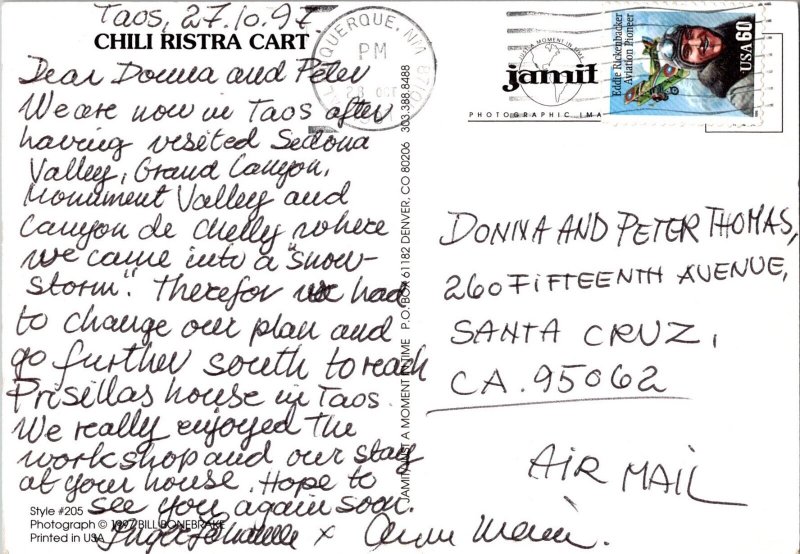 Taos, 27.10.97.
CHILI RISTRA CART
Dear Donna and Peter
We are now in Taos after
having visited Sedona
Valley, Grand Canyon,
Monument Valley and
Canyon de Chelly where
we came into a "snow-
storm". Therefor we had
to change our plan and
go further south to reach
Prisillas house in Taos.
We really enjoyed the
workshop and our stay
at your house. Hope to
see you again soon.
Style #205
Photograph © 1997 BILL BONEBRAKE
Printed in USA
JAMIT JUST A MOMENT IN TIME P.O. BOX 61182 DENVER, CO 80206 303.388.8488
ALBUQUERQUE, NM 871
PM
28 OCT
JUST A MOMENT IN TIME
jamit
PHOTOGRAPHIC IMA
Eddie Rickenbacker
Aviation Pioneer
USA 60
DONNA AND PETER THOMAS,
260 FIFTEENTH AVENUE,
SANTA CRUZ,
CA. 95062
AIR MAIL